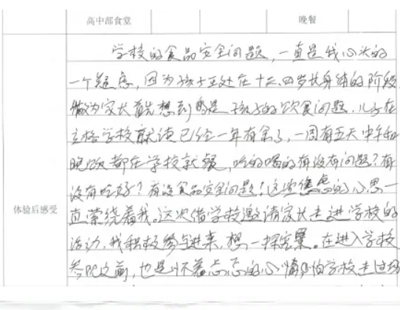 高中部食堂 晚餐
学校的食品安全问题，一直是我心头的
一个疑虑，因为孩子正处在十三四岁长身体的阶段
做为家长首先想到的是孩子的饮食问题，儿子在
立格学校就读已经一年有余了，一周有五天中午和
晚饭都在学校就餐，吃的喝的有没有问题？有
没有吃好？有没食品安全问题！这些焦虑的心思一
体验后感受
直萦绕着我。这次借学校邀请家长走进学校的
活动，我积极参与进来，想一探究竟。在进入学校
参观之前，也是怀着忐忑的心情，怕学校走过场